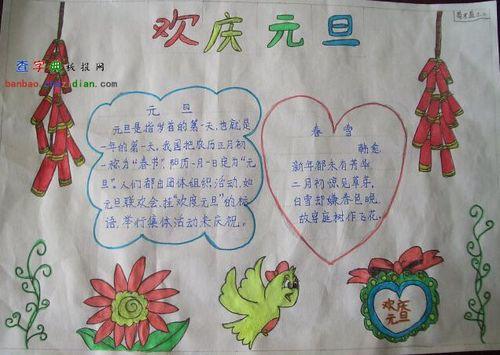 欢庆元旦
查字典板报网
banbao.chazidian.com
元旦
元旦是指岁首的第一天,也就是
一年的第一天。我国把农历正月初
一称为“春节”,阳历一月一日定为“元
旦”。人们都由团体组织活动,如
元旦联欢会,挂“欢度元旦”的标
语,举行集体活动来庆祝。
春雪
韩愈
新年都未有芳华,
二月初惊见草芽。
白雪却嫌春色晚,
故穿庭树作飞花。
欢庆
元旦